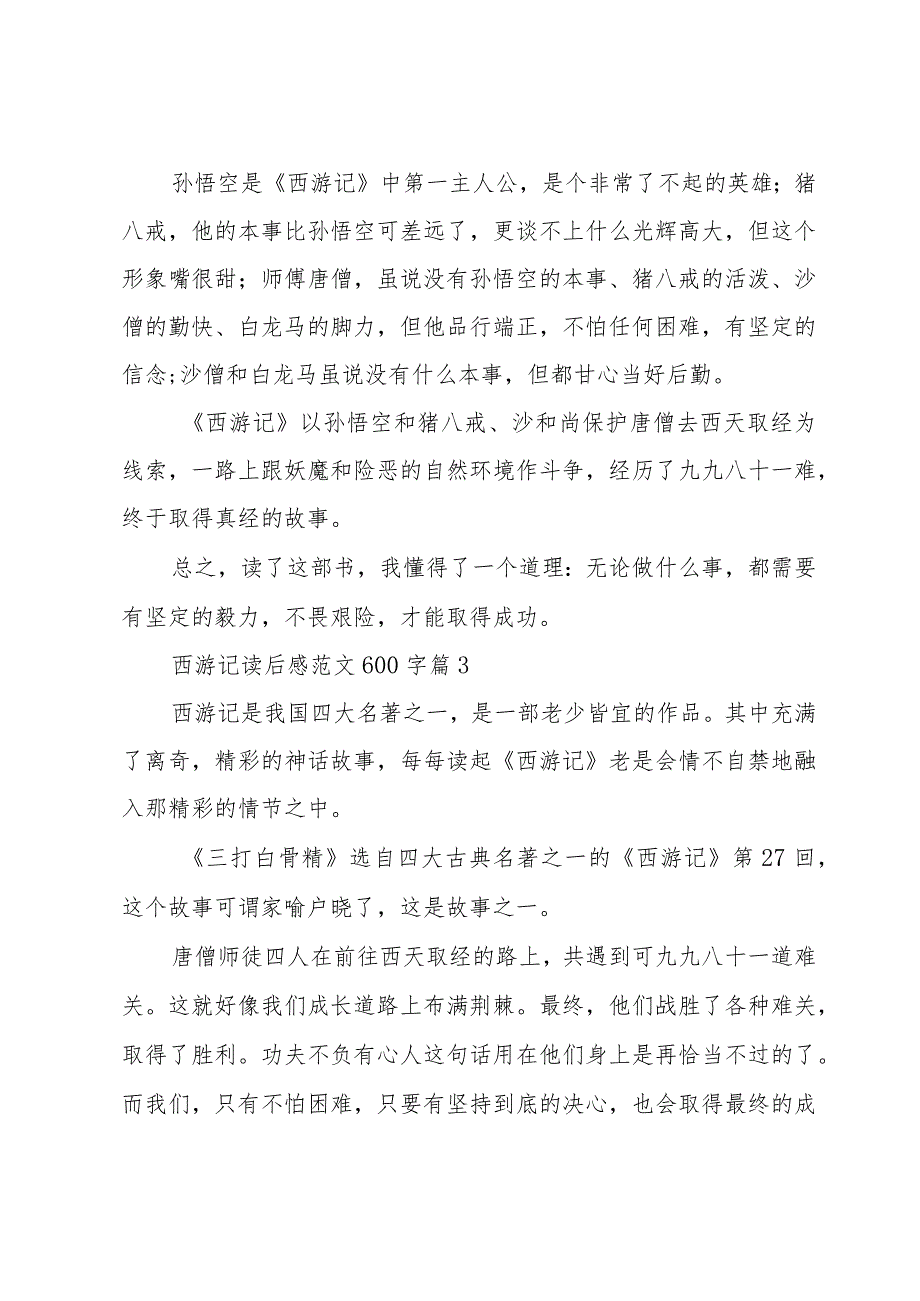 孙悟空是《西游记》中第一主人公，是个非常了不起的英雄；猪
八戒，他的本事比孙悟空可差远了，更谈不上什么光辉高大，但这个
形象嘴很甜；师傅唐僧，虽说没有孙悟空的本事、猪八戒的活泼、沙
僧的勤快、白龙马的脚力，但他品行端正，不怕任何困难，有坚定的
信念;沙僧和白龙马虽说没有什么本事，但都甘心当好后勤。
《西游记》以孙悟空和猪八戒、沙和尚保护唐僧去西天取经为
线索，一路上跟妖魔和险恶的自然环境作斗争，经历了九九八十一难，
终于取得真经的故事。
总之，读了这部书，我懂得了一个道理：无论做什么事，都需要
有坚定的毅力，不畏艰险，才能取得成功。
西游记读后感范文 600 字篇 3
西游记是我国四大名著之一，是一部老少皆宜的作品。其中充满
了离奇，精彩的神话故事，每每读起《西游记》老是会情不自禁地融
入那精彩的情节之中。
《三打白骨精》选自四大古典名著之一的《西游记》第 27 回，
这个故事可谓家喻户晓了，这是故事之一。
唐僧师徒四人在前往西天取经的路上，共遇到可九九八十一道难
关。这就好像我们成长道路上布满荆棘。最终，他们战胜了各种难关，
取得了胜利。功夫不负有心人这句话用在他们身上是再恰当不过的了。
而我们，只有不怕困难，只要有坚持到底的决心，也会取得最终的成